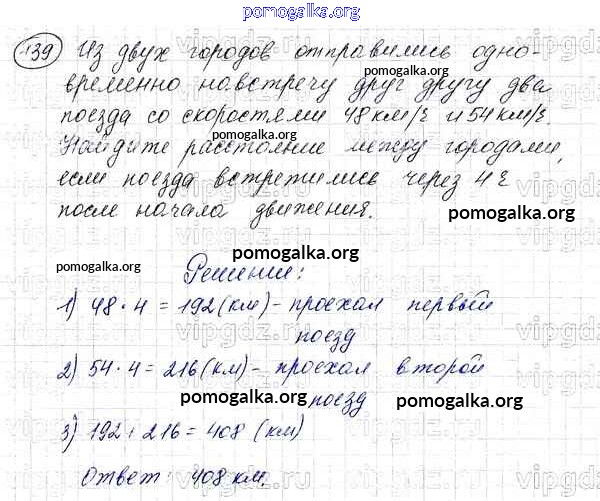 pomogalka.org
139 Из двух городов отправились одно-
временно навстречу друг другу два
pomogalka.org
поезда со скоростями 48 км/ч и 54 км/ч.
pomogalka.org
Найдите расстояние между городами,
если поезда встретились через 4 ч
после начала движения.
pomogalka.org
pomogalka.org
pomogalka.org
Решение:
1) 48 · 4 = 192 (км) - проехал первый
поезд
pomogalka.org
2) 54 · 4 = 216 (км) - проехал второй
поезд
pomogalka.org
pomogalka.org
3) 192 + 216 = 408 (км)
Ответ: 408 км.